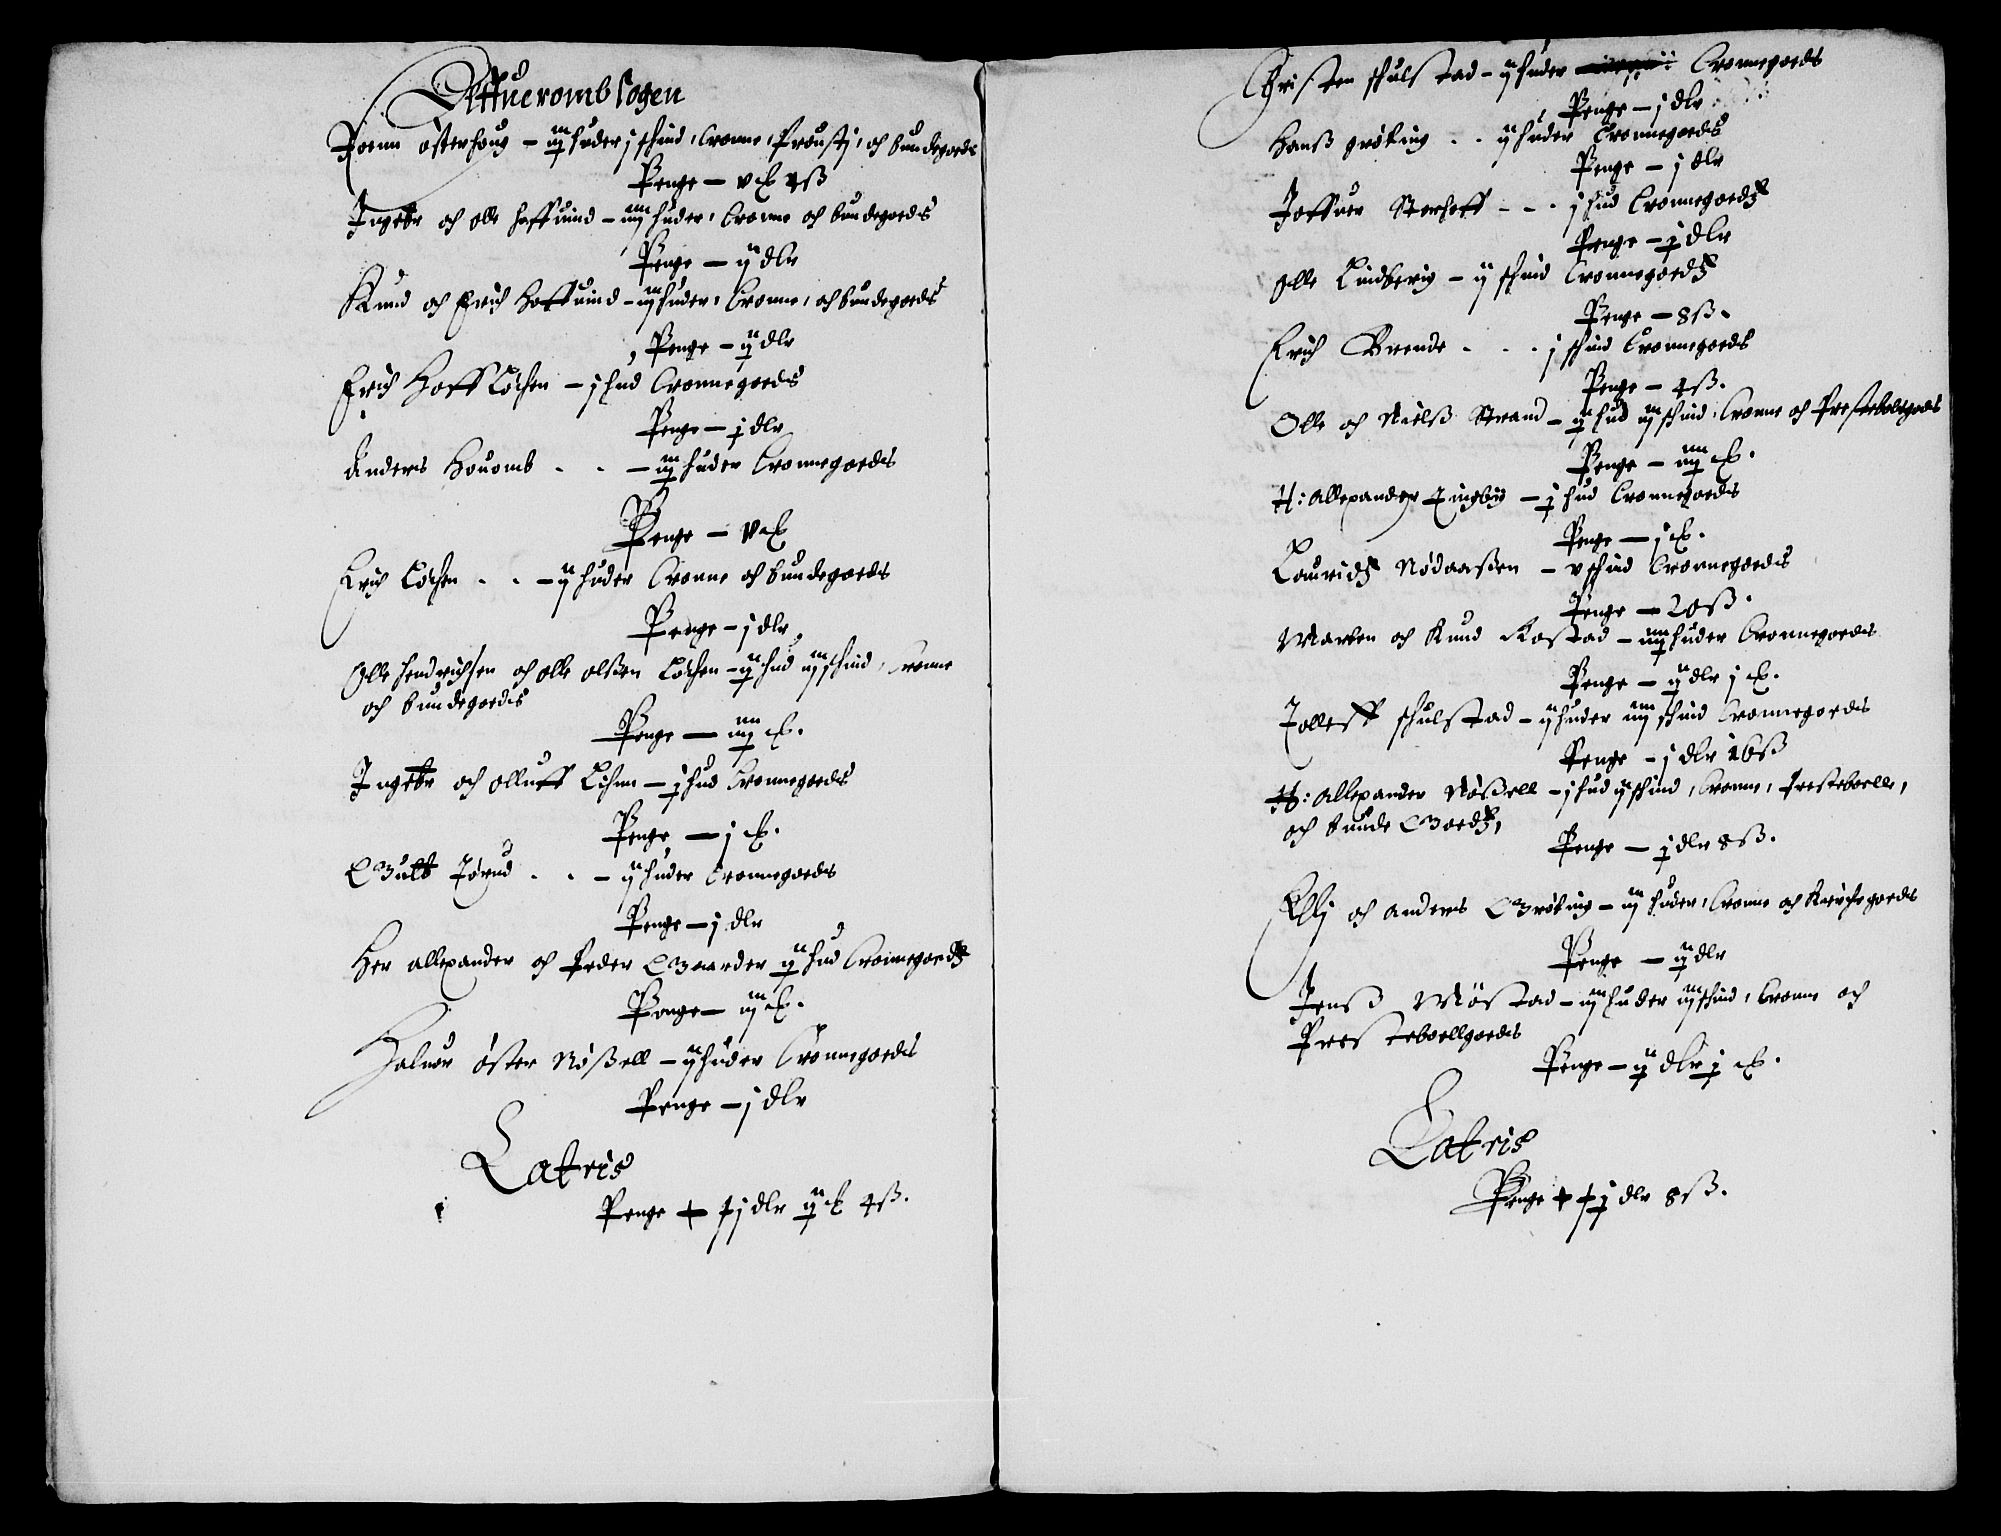 Attueromb sogen
Joenn østerhoug – iij huder j schind, Cronne, Prousti, och bundegoeds
Penge – v ℔ 4 ß
Ingebr och olle hoffuind – iiij huder, Cronne och bundegoeds
Penge – ij dlr
Knud och Erich Hoffuind – iij huder, Cronne, och bundegoeds
Penge – ij dlr
Erich Hoff Løchen – j hud Cronnegoeds
Penge – j dlr
Anders Houomb . . – iij huder Cronnegoeds
Penge – v ℔
Erich Løchen . . – ij huder Cronne och bundegoeds
Penge – j dlr
Olle hendrichsen och olle olßen Løchen – ij hud iij schind, Cronne
och bundegoeds
Penge – iiij ℔.
Ingebr och olluff Lihnn – j hud Cronnegoeds
Penge – j ℔.
Gulb Jørud . . – ij huder Cronnegoeds
Penge – j dlr
Her allexander och Peder Gaarder ij hud Cronnegoeds
Penge – iij ℔.
Haluor øster Nøßell – ij huder Cronnegoeds
Penge – j dlr
Latris
Penge – dlr ij ℔ 4 ß.
Christen schulstad – ij huder Cronnegoeds
Penge – j dlr
Hanß grøting . . ij huder Cronnegoeds
Penge – j dlr
Joffuer Storhoff – – . j hud Cronnegoeds
Penge – j dlr
Olle Lindberig – ij schind Cronnegoeds
Penge – 8 ß.
Erich Brende . . . j schind Cronnegoeds
Penge – 4 ß.
Olle och Nielß Strand – ij hud iij schind, Cronne och Prestebolegoeds
Penge – iiij ℔.
H: allexander Lingbye – j hud Cronnegoeds
Penge – j ℔.
Lauridz Nødaaßen – v schind Cronnegoeds
Penge – 20 ß.
Marten och Knud Rostad – iiij huder Cronnegoeds
Penge – ij dlr j ℔.
Tolleff schulstad – ij huder iiij schind Cronnegoeds
Penge – j dlr 16 ß
H: allexander Nøßell – j hud ij schind, Cronne, Presteboelle,
och bunde Goeds,
Penge – j dlr 8 ß.
Elli och anders Grøting – iij huder, Cronne och Kirchegoeds
Penge – ij dlr
Jenß Møstad – iij huder iij schind, Cronne och
Presteboellgoeds
Penge – ij dlr j ℔.
Latris
Penge – dlr 8 ß.